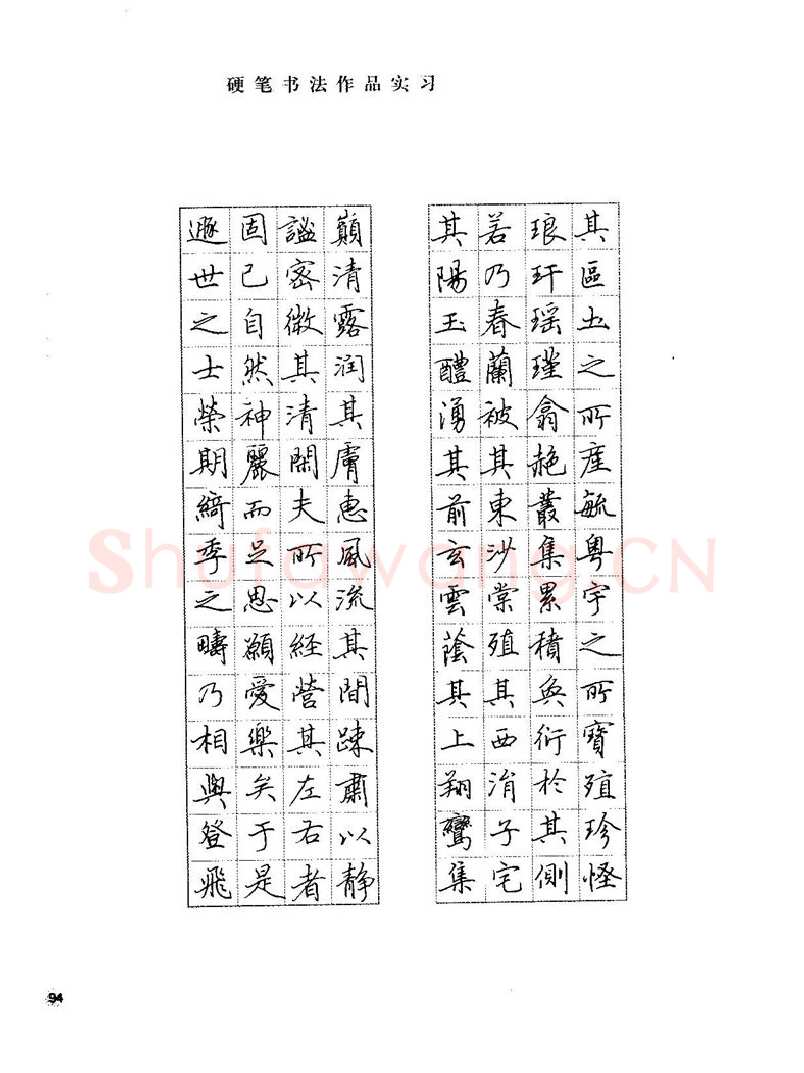 硬笔书法作品实习
其區土之所産毓粤宇之所寶殖珍怪
琅玕瑶瑾翕赩叢集累積奐衍於其側
若乃春蘭被其東沙棠殖其西涓子宅
其陽玉醴湧其前玄雲蔭其上翔鸞集
巔清露润其膚惠風流其間竦肅以静
謐密微其清閑夫所以経營其左右者
固已自然神麗而足思願愛樂矣于是
遯世之士榮期綺季之疇乃相與登飛
Shufawang.CN
94